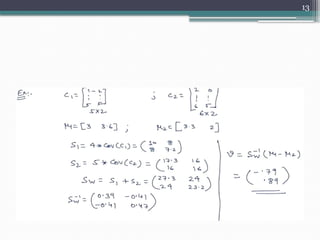 13
Ex:-
C₁ = [1 -2 ⋮ ⋮ 5 5] ; C₂ = [2 0 ⋮ ⋮ 6 5]
5×2 6×2
M₁ = [3 3.6] ; M₂ = [3.3 2]
S₁ = 4 * Cov(C₁) = (10 8 8 7.2)
S₂ = 5 * Cov(C₂) = (17.3 16 16 16)
Sw = S₁ + S₂ = (27.3 24 24 23.2)
Sw⁻¹ = (0.39 -0.41 -0.41 0.47)
v = Sw⁻¹(M₁ - M₂)
= (-.79 .89)